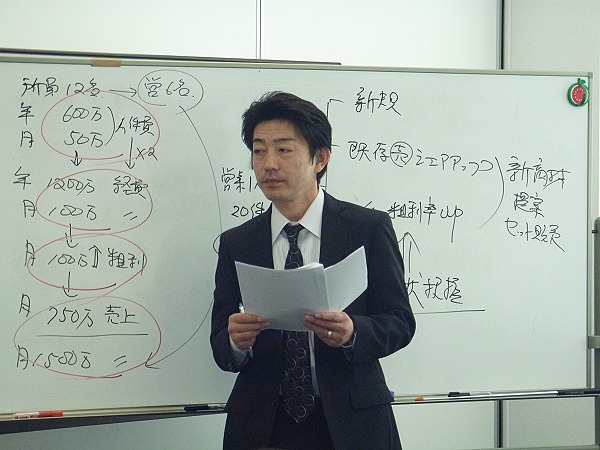 所員12名 → 営6名
年 600万
月 50万
人件費
×2
年 1200万 経費
月 100万 〃
月 100万↑ 粗利
月 750万 売上
月 1500万 〃
新規
既存 売 シェアアップ
営業1人
20件
粗利率up
状況把握
新商材
提案
セット販売